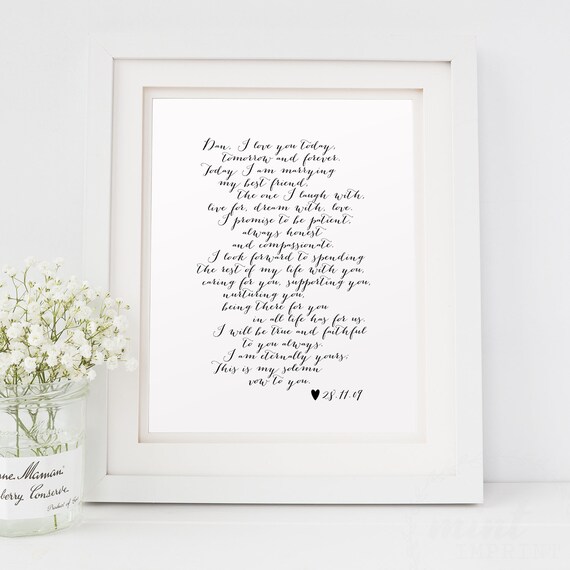 Dan, I love you today,
tomorrow and forever.
Today I am marrying
my best friend,
the one I laugh with,
live for, dream with, love.
I promise to be patient,
always honest
and compassionate.
I look forward to spending
the rest of my life with you,
caring for you, supporting you,
nurturing you,
being there for you
in all life has for us.
I will be true and faithful
to you always.
I am eternally yours.
This is my solemn
vow to you.
♥ 28.11.09
ne Maman
berry Conserve
Product of
mint
IMPRINT